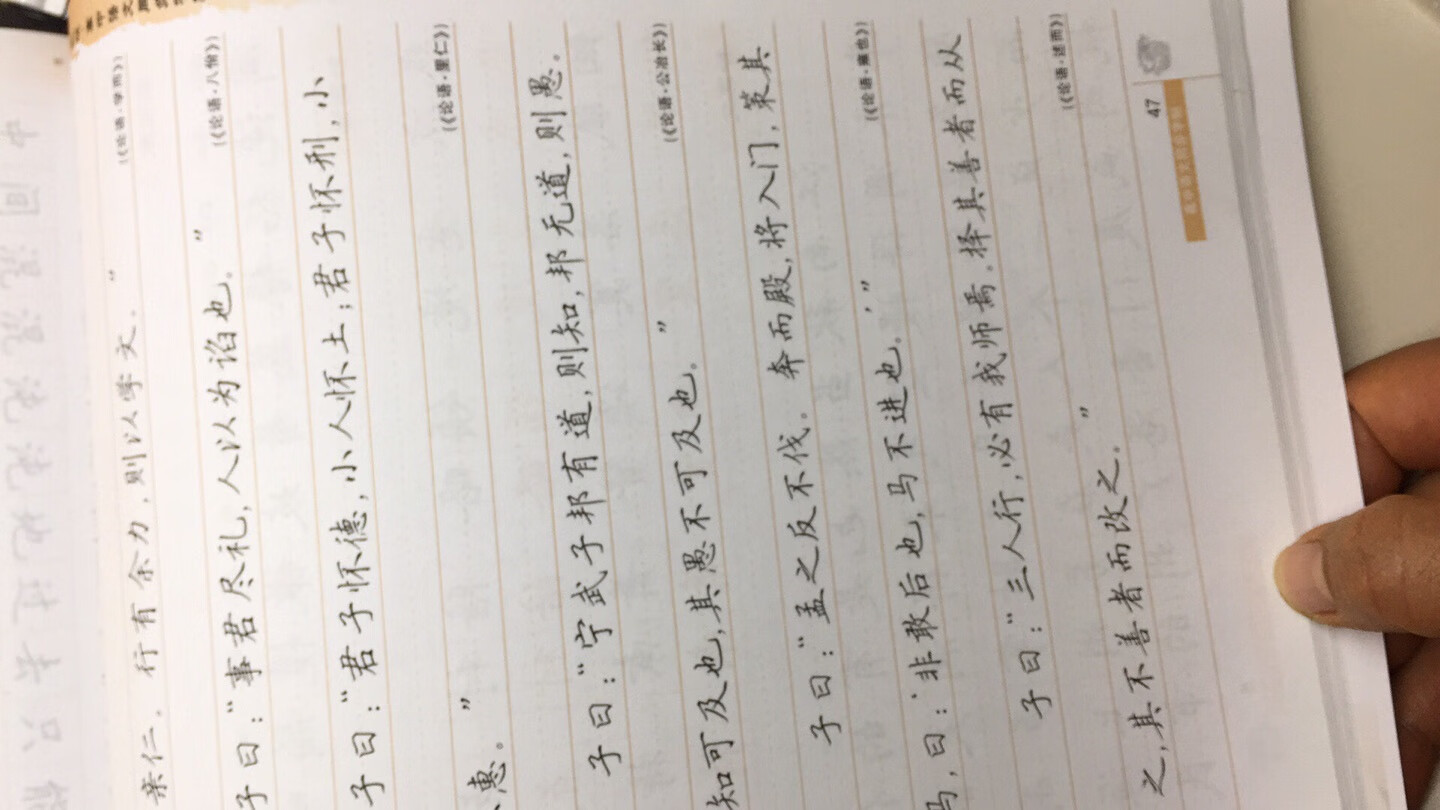 亲仁。行有余力，则以学文。”
(《论语·学而》)
子曰：“事君尽礼，人以为谄也。”
(《论语·八佾》)
子曰：“君子怀德，小人怀土；君子怀刑，小
人怀惠。”
(《论语·里仁》)
子曰：“宁武子邦有道，则知，邦无道，则愚。
知可及也，其愚不可及也。”
(《论语·公冶长》)
子曰：“孟之反不伐。奔而殿，将入门，策其
马，曰：‘非敢后也，马不进也。’”
(《论语·雍也》)
子曰：“三人行，必有我师焉。择其善者而从
之，其不善者而改之。”
(《论语·述而》)
47